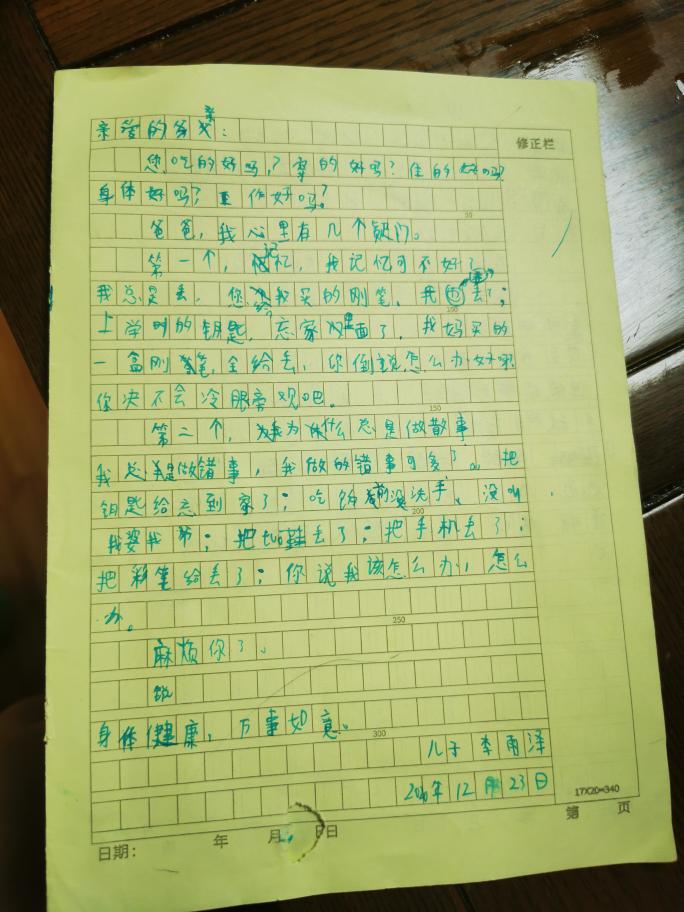 亲爱的爹亲：
修正栏
您吃的好吗，？穿的好吗？住的好吗？
身体好吗？工作好吗？
50
爸爸，我心里有几个疑问。
第一个，记忆，我记忆可不好了
我总是丢，您给我买的刚笔，我丢了；
100
上学时的钥匙，忘家里面了，我妈买的
一盒刚笔，全给丢，你倒说怎么办好呢
你决不会冷眼旁观吧。
150
第二个，我为什么总是做散事
我总是做错事，我做的错事可多了。把
钥匙给忘到家了；吃饭前没洗手、没叫
200
我婆我爷；把丢了；把手机去了；
把彩笔给丢了；你说我该怎么办，怎么
办。
250
麻烦你了、
身体健康，万事如意。
300
儿子李雨泽
2020年12月23日
17X20=340
日期： 年 月 日
第 页